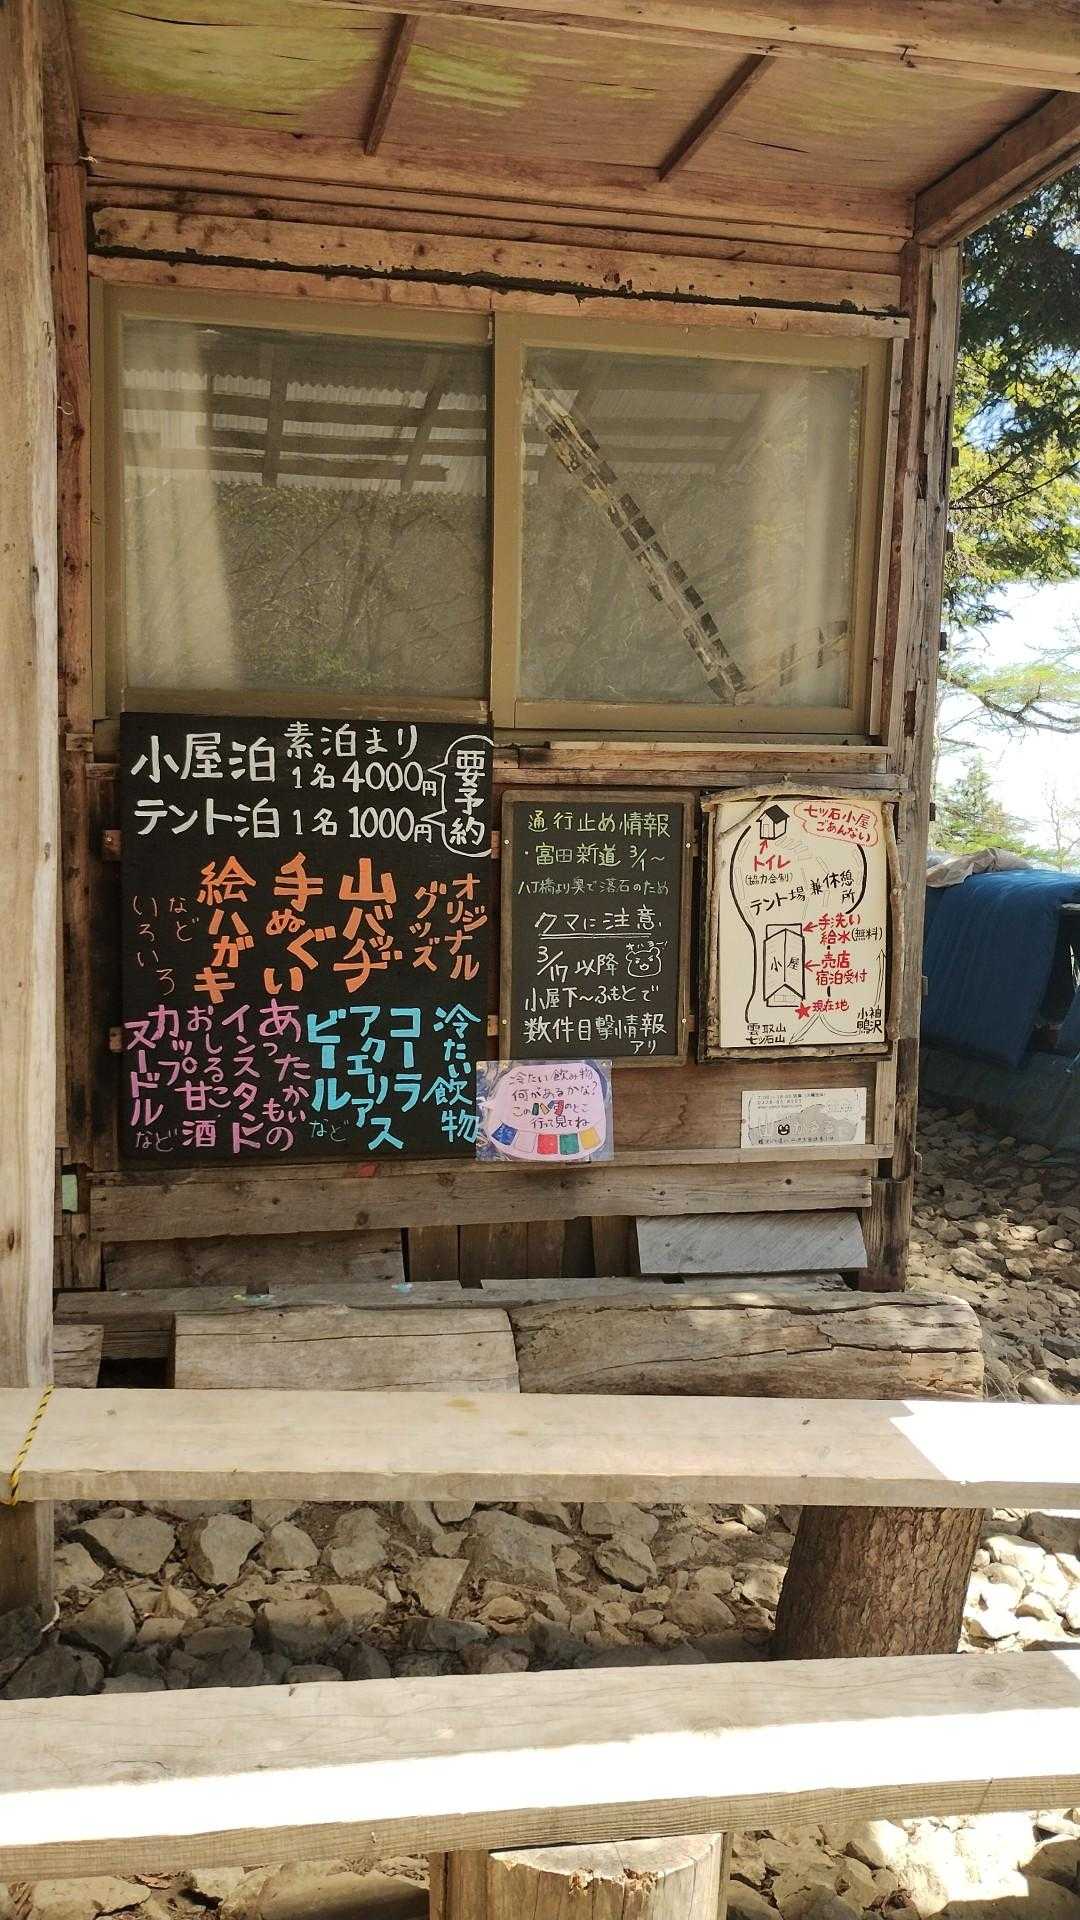 小屋泊 素泊まり
1名 4000円
テント泊 1名 1000円
要予約
オリジナル
グッズ
山バッヂ
手ぬぐい
絵ハガキ
など
いろいろ
冷たい飲物
コーラ
アクエリアス
ビール
など
あったかいもの
インスタント
おしるこ
甘酒
カップ
ヌードル
など
通行止め情報
・富田新道 3/1～
八丁橋より奥で落石のため
クマに注意
3/17以降
小屋下～ふもとで
数件目撃情報
アリ
七ツ石小屋
ごあんない
トイレ
(協力金制)
テント場兼休憩所
手洗い
給水(無料)
小屋
売店
宿泊受付
★現在地
雲取山
七ツ石山
小袖
鴨沢
冷たい飲み物
何があるかな？
このハタのとこ
行って見てね